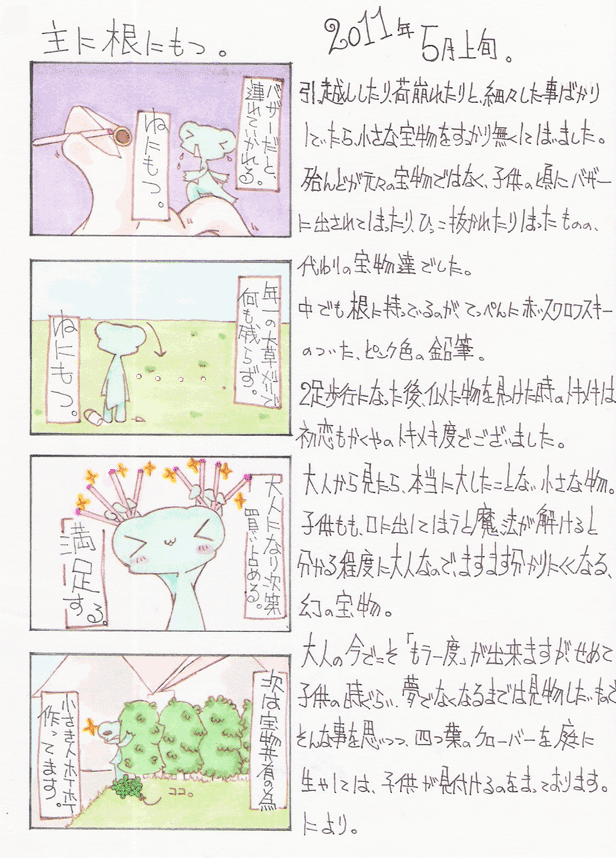 主に根にもつ。
バザーだと、
連れていかれる。
ねにもつ。
年一の大草刈りで
何も残らず。
ねにもつ。
大人になり次第
買い占める。
満足する。
次は宝物共有の為
小さき人ホイホイ
作ってます。
ココ。
2011年5月上旬。
引越ししたり、荷崩れたりと、細々した事ばかり
していたら、小さな宝物をすっかり無くしてしまいました。
殆んどが元々の宝物ではなく、子供の頃にバザー
に出されてしまったり、ひっこ抜かれたりしまったものの、
代わりの宝物達でした。
中でも根に持っているのが、てっぺんに赤いスワロフスキー
のついた、ピンク色の鉛筆。
2足歩行になった後、似た物を見つけた時のトキメキは
初恋もかくやのトキメキ度でございました。
大人から見たら、本当に大したことない、小さな物。
子供もも、口に出してしまうと魔法が解けると
分かる程度に大人なので、ますます分かりにくくなる、
幻の宝物。
大人の今でこそ「もう一度」が出来ますが、せめて
子供の時ぐらい、夢でなくなるまでは見物したいものと
そんな事を思いつつ、四つ葉のクローバーを庭に
生やしては、子供が見付けるのをまっております。
により。